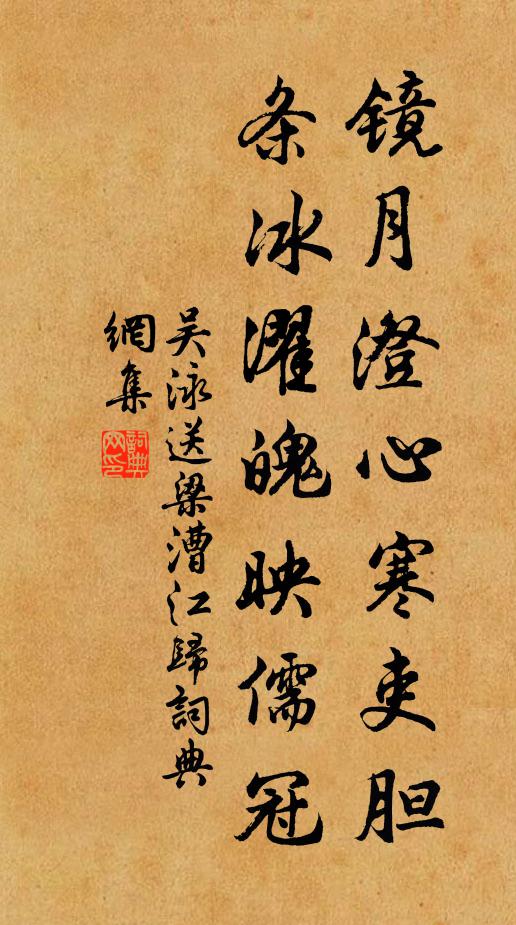 镜月澄心寒吏胆
条冰濯魄映儒冠
吴泳送梁漕江歸詞典
網集
詞典
网印